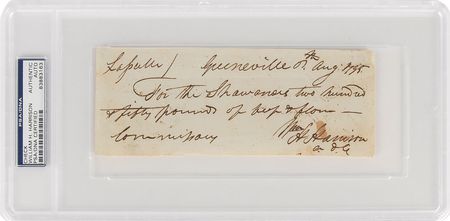 PSA/DNA
CHECK
WILLIAM H. HARRISON
PSA/DNA CERTIFIED
AUTHENTIC
AUTO
83893163
Greeneville Augt 1795
For the Shawanees two hundred
& fifty pounds of beef & flour —
Commissary
Wm H Harrison
a d C